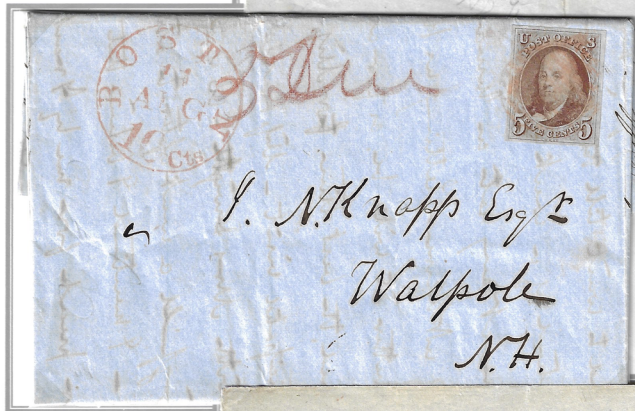 BOSTON
11
AUG
10 Cts
U S
POST OFFICE
5 FIVE CENTS 5
J. N. Knapp Esqr
Walpole
N.H.